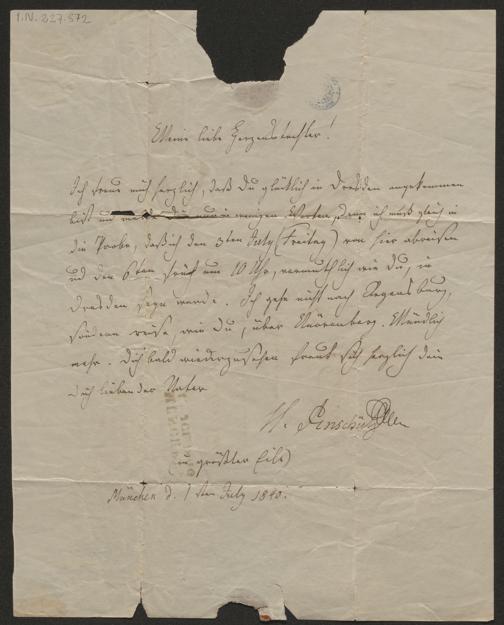 I.N. 227.572
Meine liebe Herzenstochter!
Ich freue mich herzlich, daß Du glücklich in Dresden angekommen
bist und in wenigen Worten, denn ich muß gleich in
die Probe, daß ich den 3ten July (Freitag) von hier abreisen
und den 6ten früh um 10 Uhr, vermuthlich wie Du, in
Dresden seyn werde. Ich gehe nicht nach Regensburg,
sondern reise, wie Du, über Nürenberg. Mündlich
mehr. Dich bald wiederzusehen freut sich herzlich dein
Dich liebender Vater
in größter Eile)
München d. 1ten July 1840.